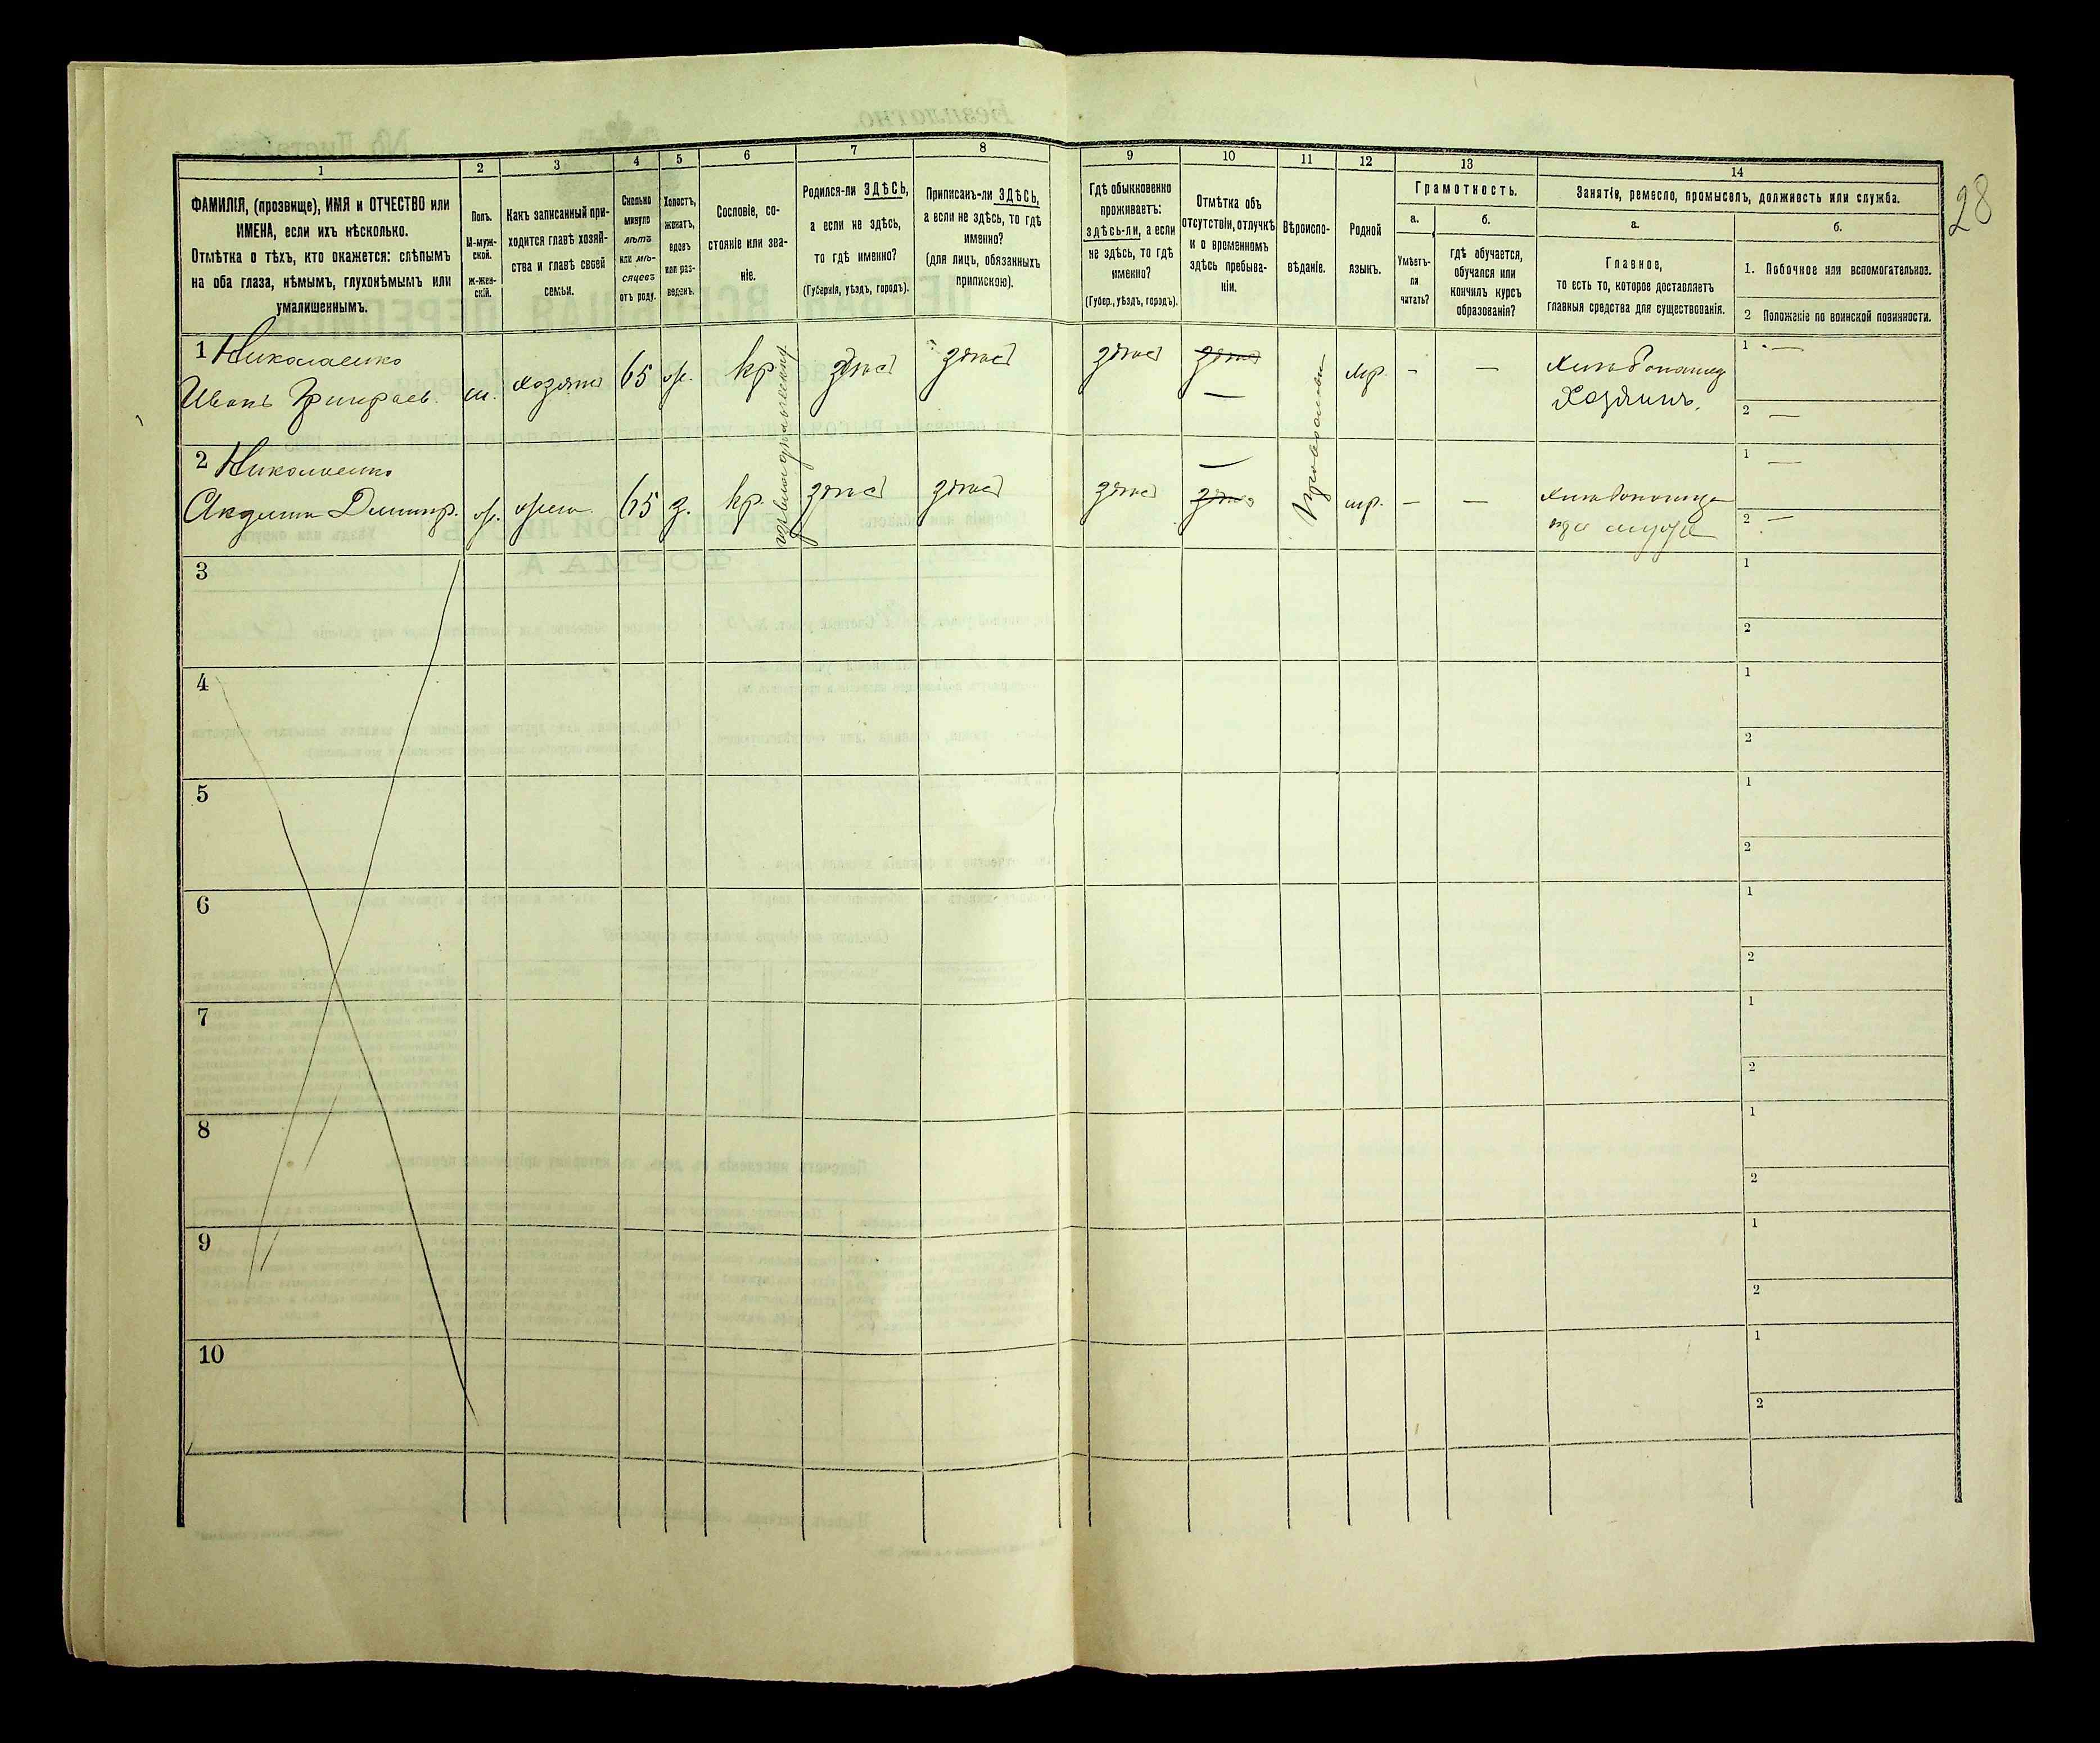 28
1 2 3 4 5 6 7 8 9 10 11 12 13 14
ФАМИЛІЯ, (прозвище), ИМЯ и ОТЧЕСТВО или
ИМЕНА, если ихъ нѣсколько.
Отмѣтка о тѣхъ, кто окажется: слѣпымъ
на оба глаза, нѣмымъ, глухонѣмымъ или
умалишеннымъ.
Полъ.
М-муж-
ской.
ж-жен-
скій.
Какъ записанный при-
ходится главѣ хозяй-
ства и главѣ своей
семьи.
Сколько
минуло
лѣтъ
или мѣ-
сяцевъ
отъ роду.
Холостъ,
женатъ,
вдовъ
или раз-
веденъ.
Сословіе, со-
стояніе или зва-
ніе.
Родился-ли ЗДѢСЬ,
а если не здѣсь,
то гдѣ именно?
(Губернія, уѣздъ, городъ).
Приписанъ-ли ЗДѢСЬ,
а если не здѣсь, то гдѣ
именно?
(для лицъ, обязанныхъ
припискою).
Гдѣ обыкновенно
проживаетъ:
здѣсь-ли, а если
не здѣсь, то гдѣ
именно?
(Губер., уѣздъ, городъ).
Отмѣтка объ
отсутствіи, отлучкѣ
и о временномъ
здѣсь пребыва-
ніи.
Вѣроиспо-
вѣданіе.
Родной
языкъ.
Грамотность.
а.
Умѣетъ-
ли
читать?
б.
гдѣ обучается,
обучался или
кончилъ курсъ
образованія?
Занятія, ремесло, промыселъ, должность или служба.
а.
Главное,
то есть то, которое доставляетъ
главныя средства для существованія.
б.
1. Побочное или вспомогательное.
2 Положеніе по воинской повинности.
1 Николаенко
Иванъ Григорьев. м. хозяинъ 65 ж. кр. здѣсь здѣсь здѣсь здѣсь — Православн. мр. — — Хлѣбопашец
Хозяинъ.
1 —
2 —
2 Николаенко
Димитр. ж. жена 65 з. кр. здѣсь здѣсь здѣсь — здѣсь мр. — — Хлѣбопашца
при мужѣ
1 —
2 —
3
1
2
4
1
2
5
1
2
6
1
2
7
1
2
8
1
2
9
1
2
10
1
2